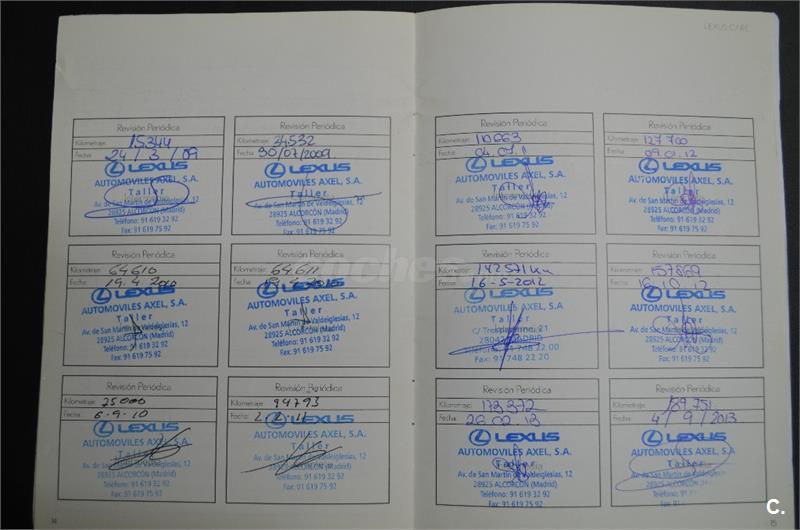 LEXUS CARE
Revisión Periódica
Kilometraje: 15344
Fecha: 24/3/09
LEXUS
AUTOMOVILES AXEL, S.A.
Taller
Av. de San Martín de Valdeiglesias, 12
28925 ALCORCÓN (Madrid)
Teléfono: 91 619 32 92
Fax: 91 619 75 92
Revisión Periódica
Kilometraje: 34532
Fecha: 30/07/2009
LEXUS
AUTOMOVILES AXEL, S.A.
Taller
Av. de San Martín de Valdeiglesias, 12
28925 ALCORCÓN (Madrid)
Teléfono: 91 619 32 92
Fax: 91 619 75 92
Revisión Periódica
Kilometraje: 64610
Fecha: 19.4.2010
LEXUS
AUTOMOVILES AXEL, S.A.
Taller
Av. de San Martín de Valdeiglesias, 12
28925 ALCORCÓN (Madrid)
Teléfono: 91 619 32 92
Fax: 91 619 75 92
Revisión Periódica
Kilometraje: 64611
Fecha:
LEXUS
AUTOMOVILES AXEL, S.A.
Taller
Av. de San Martín de Valdeiglesias, 12
28925 ALCORCÓN (Madrid)
Teléfono: 91 619 32 92
Fax: 91 619 75 92
Revisión Periódica
Kilometraje: 75000
Fecha: 6-9-10
LEXUS
AUTOMOVILES AXEL, S.A.
Taller
Av. de San Martín de Valdeiglesias, 12
28925 ALCORCÓN (Madrid)
Teléfono: 91 619 32 92
Fax: 91 619 75 92
Revisión Periódica
Kilometraje: 94793
Fecha:
LEXUS
AUTOMOVILES AXEL, S.A.
Taller
Av. de San Martín de Valdeiglesias, 12
28925 ALCORCÓN (Madrid)
Teléfono: 91 619 32 92
Fax: 91 619 75 92
14
Revisión Periódica
Kilometraje: 110663
Fecha: 04.07.11
LEXUS
AUTOMOVILES AXEL, S.A.
Taller
Av. de San Martín de Valdeiglesias, 12
28925 ALCORCÓN (Madrid)
Teléfono: 91 619 32 92
Fax: 91 619 75 92
Revisión Periódica
Kilometraje: 127700
Fecha: 09.01.12
LEXUS
AUTOMOVILES AXEL, S.A.
Taller
Av. de San Martín de Valdeiglesias, 12
28925 ALCORCÓN (Madrid)
Teléfono: 91 619 32 92
Fax: 91 619 75 92
Revisión Periódica
Kilometraje: 142571km
Fecha: 16-5-2012
LEXUS
AUTOMOVILES AXEL, S.A.
Taller
21
MADRID
Teléfono: 91 748 22 00
Fax: 91 748 22 20
Revisión Periódica
Kilometraje: 157869
Fecha: 16.10.12
LEXUS
AUTOMOVILES AXEL, S.A.
Taller
Av. de San Martín de Valdeiglesias, 12
28925 ALCORCÓN (Madrid)
Teléfono: 91 619 32 92
Fax: 91 619 75 92
Revisión Periódica
Kilometraje: 173372
Fecha: 26.02.13
LEXUS
AUTOMOVILES AXEL, S.A.
Taller
Av. de San Martín de Valdeiglesias, 12
28925 ALCORCÓN (Madrid)
Teléfono: 91 619 32 92
Fax: 91 619 75 92
Revisión Periódica
Kilometraje: 189751
Fecha: 4/9/2013
LEXUS
AUTOMOVILES AXEL, S.A.
Taller
Av. de San Martín de Valdeiglesias, 12
28925 ALCORCÓN (Madrid)
Teléfono: 91 619 32 92
Fax: 91
15
C.